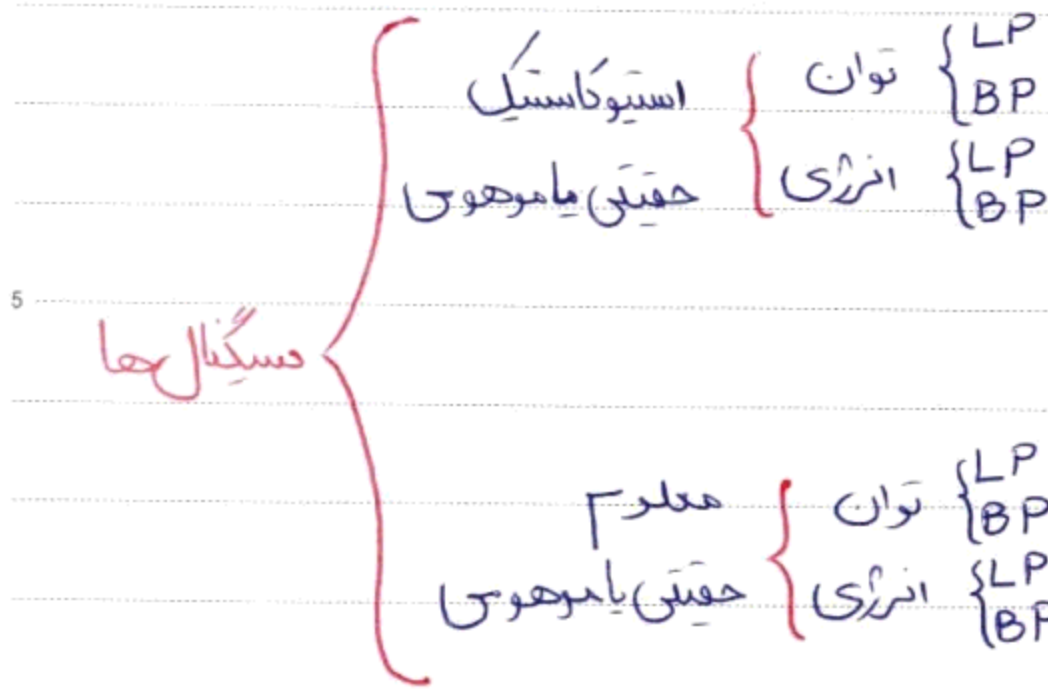 سیگنال‌ها
استیوکاستیک
حقیقی یا موهومی
توان
LP
BP
انرژی
LP
BP
5
معلوم
حقیقی یا موهومی
توان
LP
BP
انرژی
LP
BP